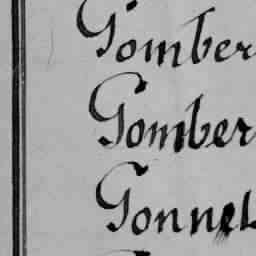 Gomber
Gomber
Gonnel